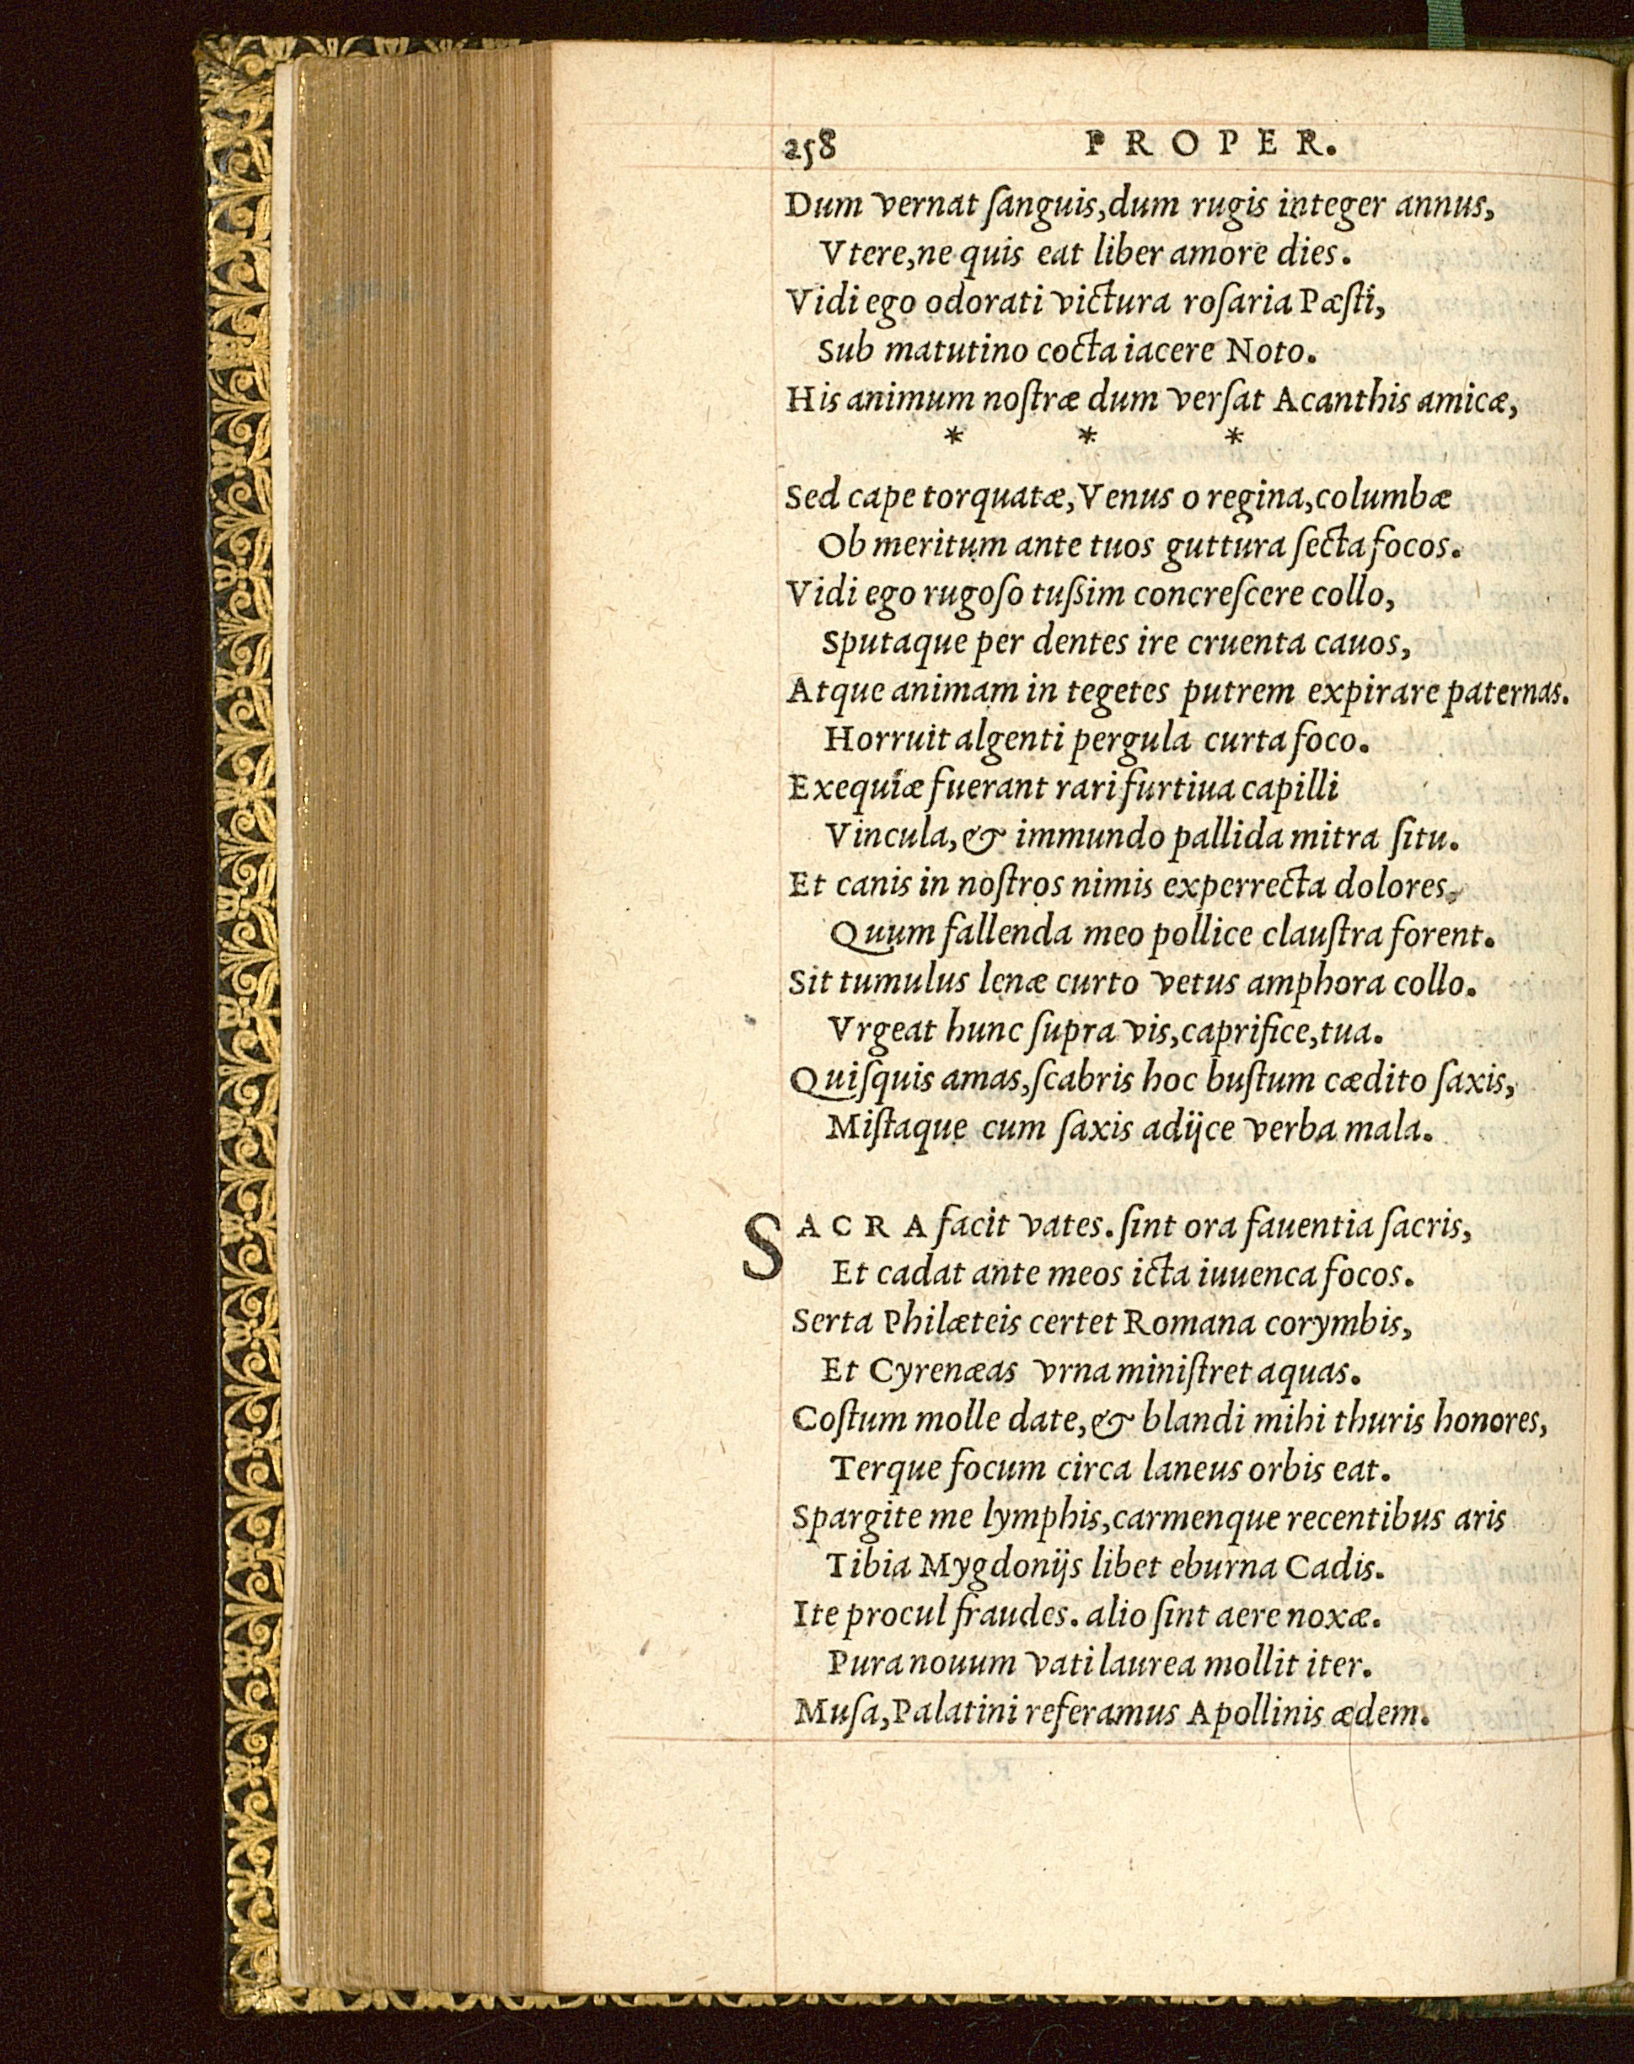 258 PROPER.
Dum vernat ſanguis, dum rugis integer annus,
Vtere, ne quis eat liber amore dies.
Vidi ego odorati victura roſaria Pæſti,
Sub matutino cocta iacere Noto.
His animum noſtræ dum verſat Acanthis amicæ,
* * *
Sed cape torquatæ, Venus o regina, columbæ
Ob meritum ante tuos guttura ſecta focos.
Vidi ego rugoſo tußim concreſcere collo,
Sputaque per dentes ire cruenta cauos,
Atque animam in tegetes putrem expirare paternas.
Horruit algenti pergula curta foco.
Exequiæ fuerant rari furtiua capilli
Vincula, & immundo pallida mitra ſitu.
Et canis in noſtros nimis experrecta dolores,
Quum fallenda meo pollice clauſtra forent.
Sit tumulus lenæ curto vetus amphora collo.
Vrgeat hunc ſupra vis, caprifice, tua.
Quiſquis amas, ſcabris hoc buſtum cædito ſaxis,
Miſtaque cum ſaxis adijce verba mala.
SACRA facit vates. ſint ora fauentia ſacris,
Et cadat ante meos icta iuuenca focos.
Serta Philæteis certet Romana corymbis,
Et Cyrenæas vrna miniſtret aquas.
Coſtum molle date, & blandi mihi thuris honores,
Terque focum circa laneus orbis eat.
Spargite me lymphis, carmenque recentibus aris
Tibia Mygdonijs libet eburna Cadis.
Ite procul fraudes. alio ſint aere noxæ.
Pura nouum vati laurea mollit iter.
Muſa, Palatini referamus Apollinis ædem.